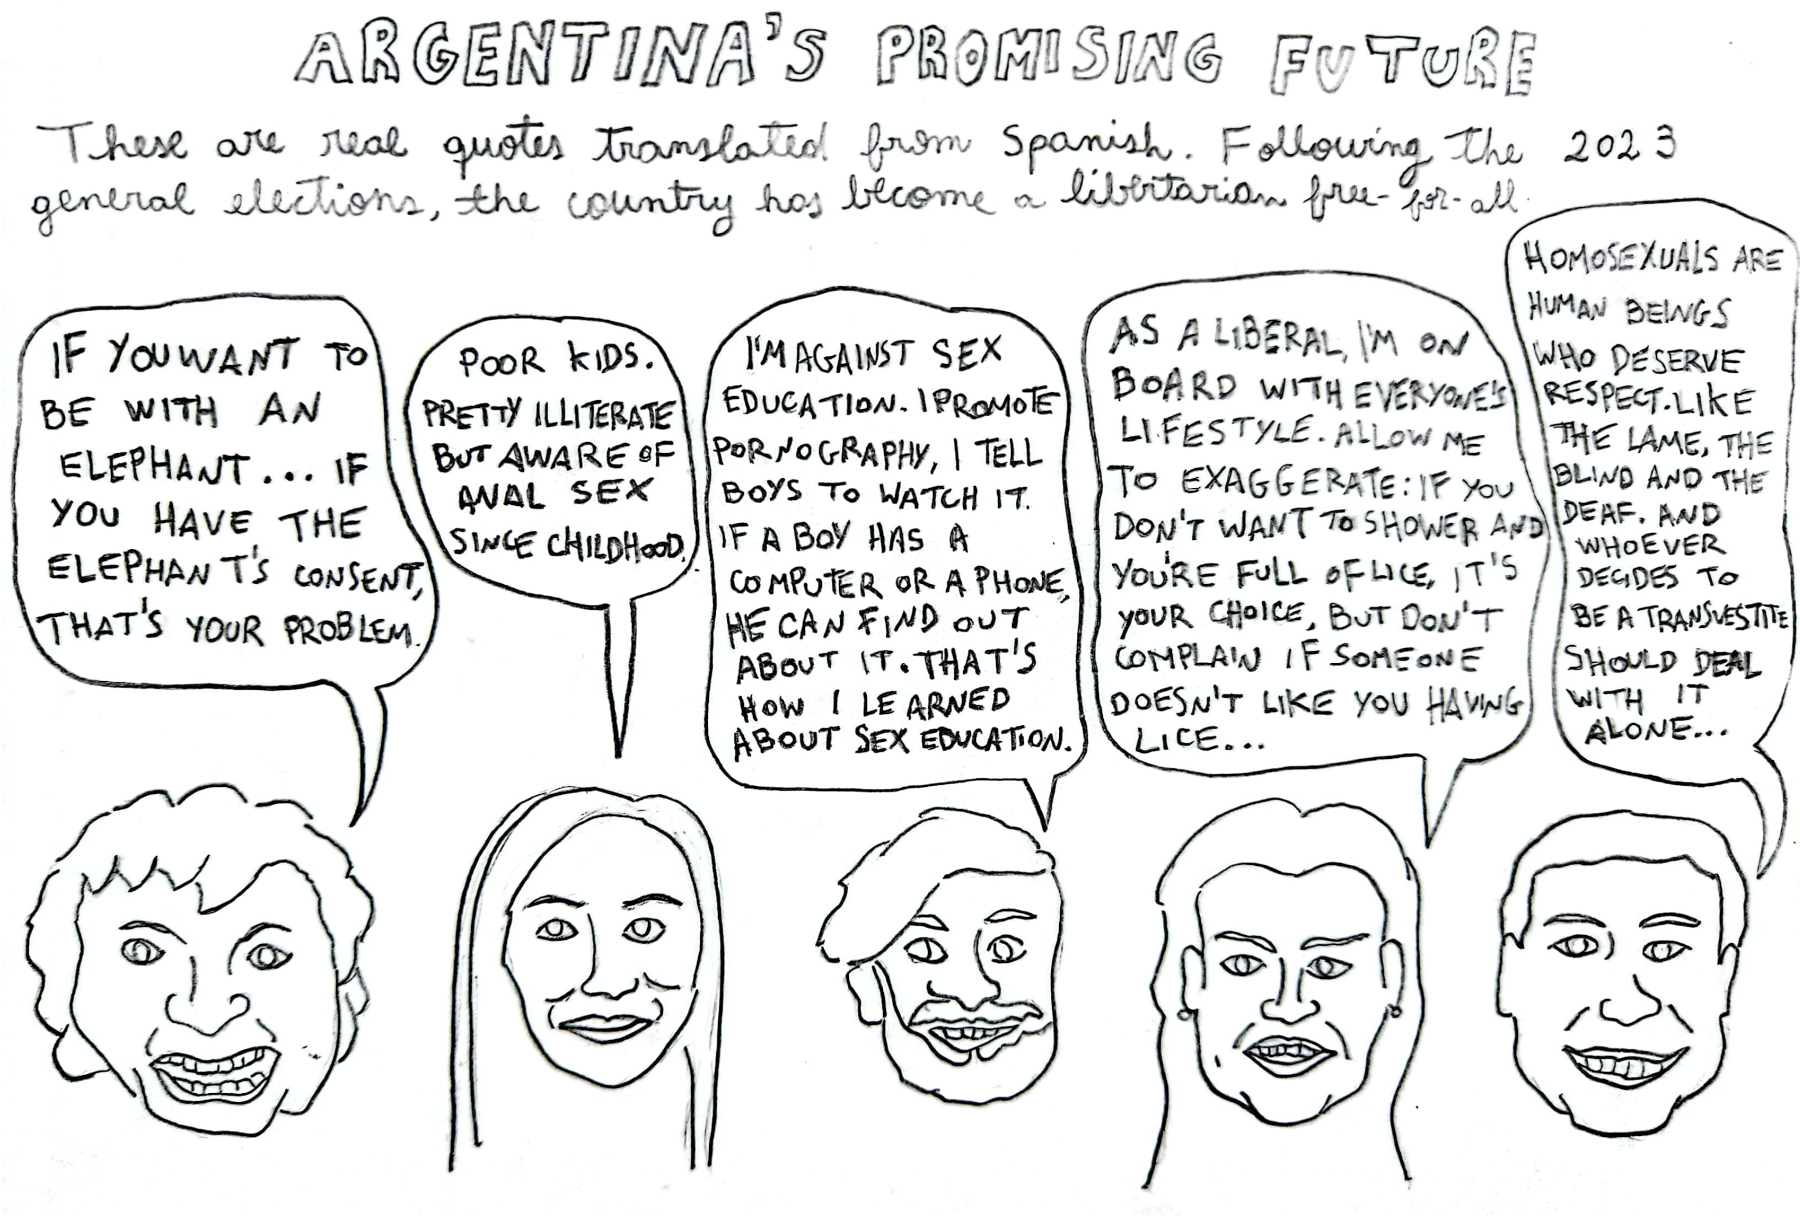 ARGENTINA'S PROMISING FUTURE
These are real quotes translated from Spanish. Following the 2023
general elections, the country has become a libertarian free-for-all.
IF YOU WANT TO
BE WITH AN
ELEPHANT... IF
YOU HAVE THE
ELEPHANT'S CONSENT,
THAT'S YOUR PROBLEM.
POOR KIDS.
PRETTY ILLITERATE
BUT AWARE OF
ANAL SEX
SINCE CHILDHOOD.
I'M AGAINST SEX
EDUCATION. I PROMOTE
PORNOGRAPHY, I TELL
BOYS TO WATCH IT.
IF A BOY HAS A
COMPUTER OR A PHONE,
HE CAN FIND OUT
ABOUT IT. THAT'S
HOW I LEARNED
ABOUT SEX EDUCATION.
AS A LIBERAL, I'M ON
BOARD WITH EVERYONE'S
LIFESTYLE. ALLOW ME
TO EXAGGERATE: IF YOU
DON'T WANT TO SHOWER AND
YOU'RE FULL OF LICE, IT'S
YOUR CHOICE, BUT DON'T
COMPLAIN IF SOMEONE
DOESN'T LIKE YOU HAVING
LICE...
HOMOSEXUALS ARE
HUMAN BEINGS
WHO DESERVE
RESPECT. LIKE
THE LAME, THE
BLIND AND THE
DEAF. AND
WHOEVER
DECIDES TO
BE A TRANSVESTITE
SHOULD DEAL
WITH IT
ALONE...